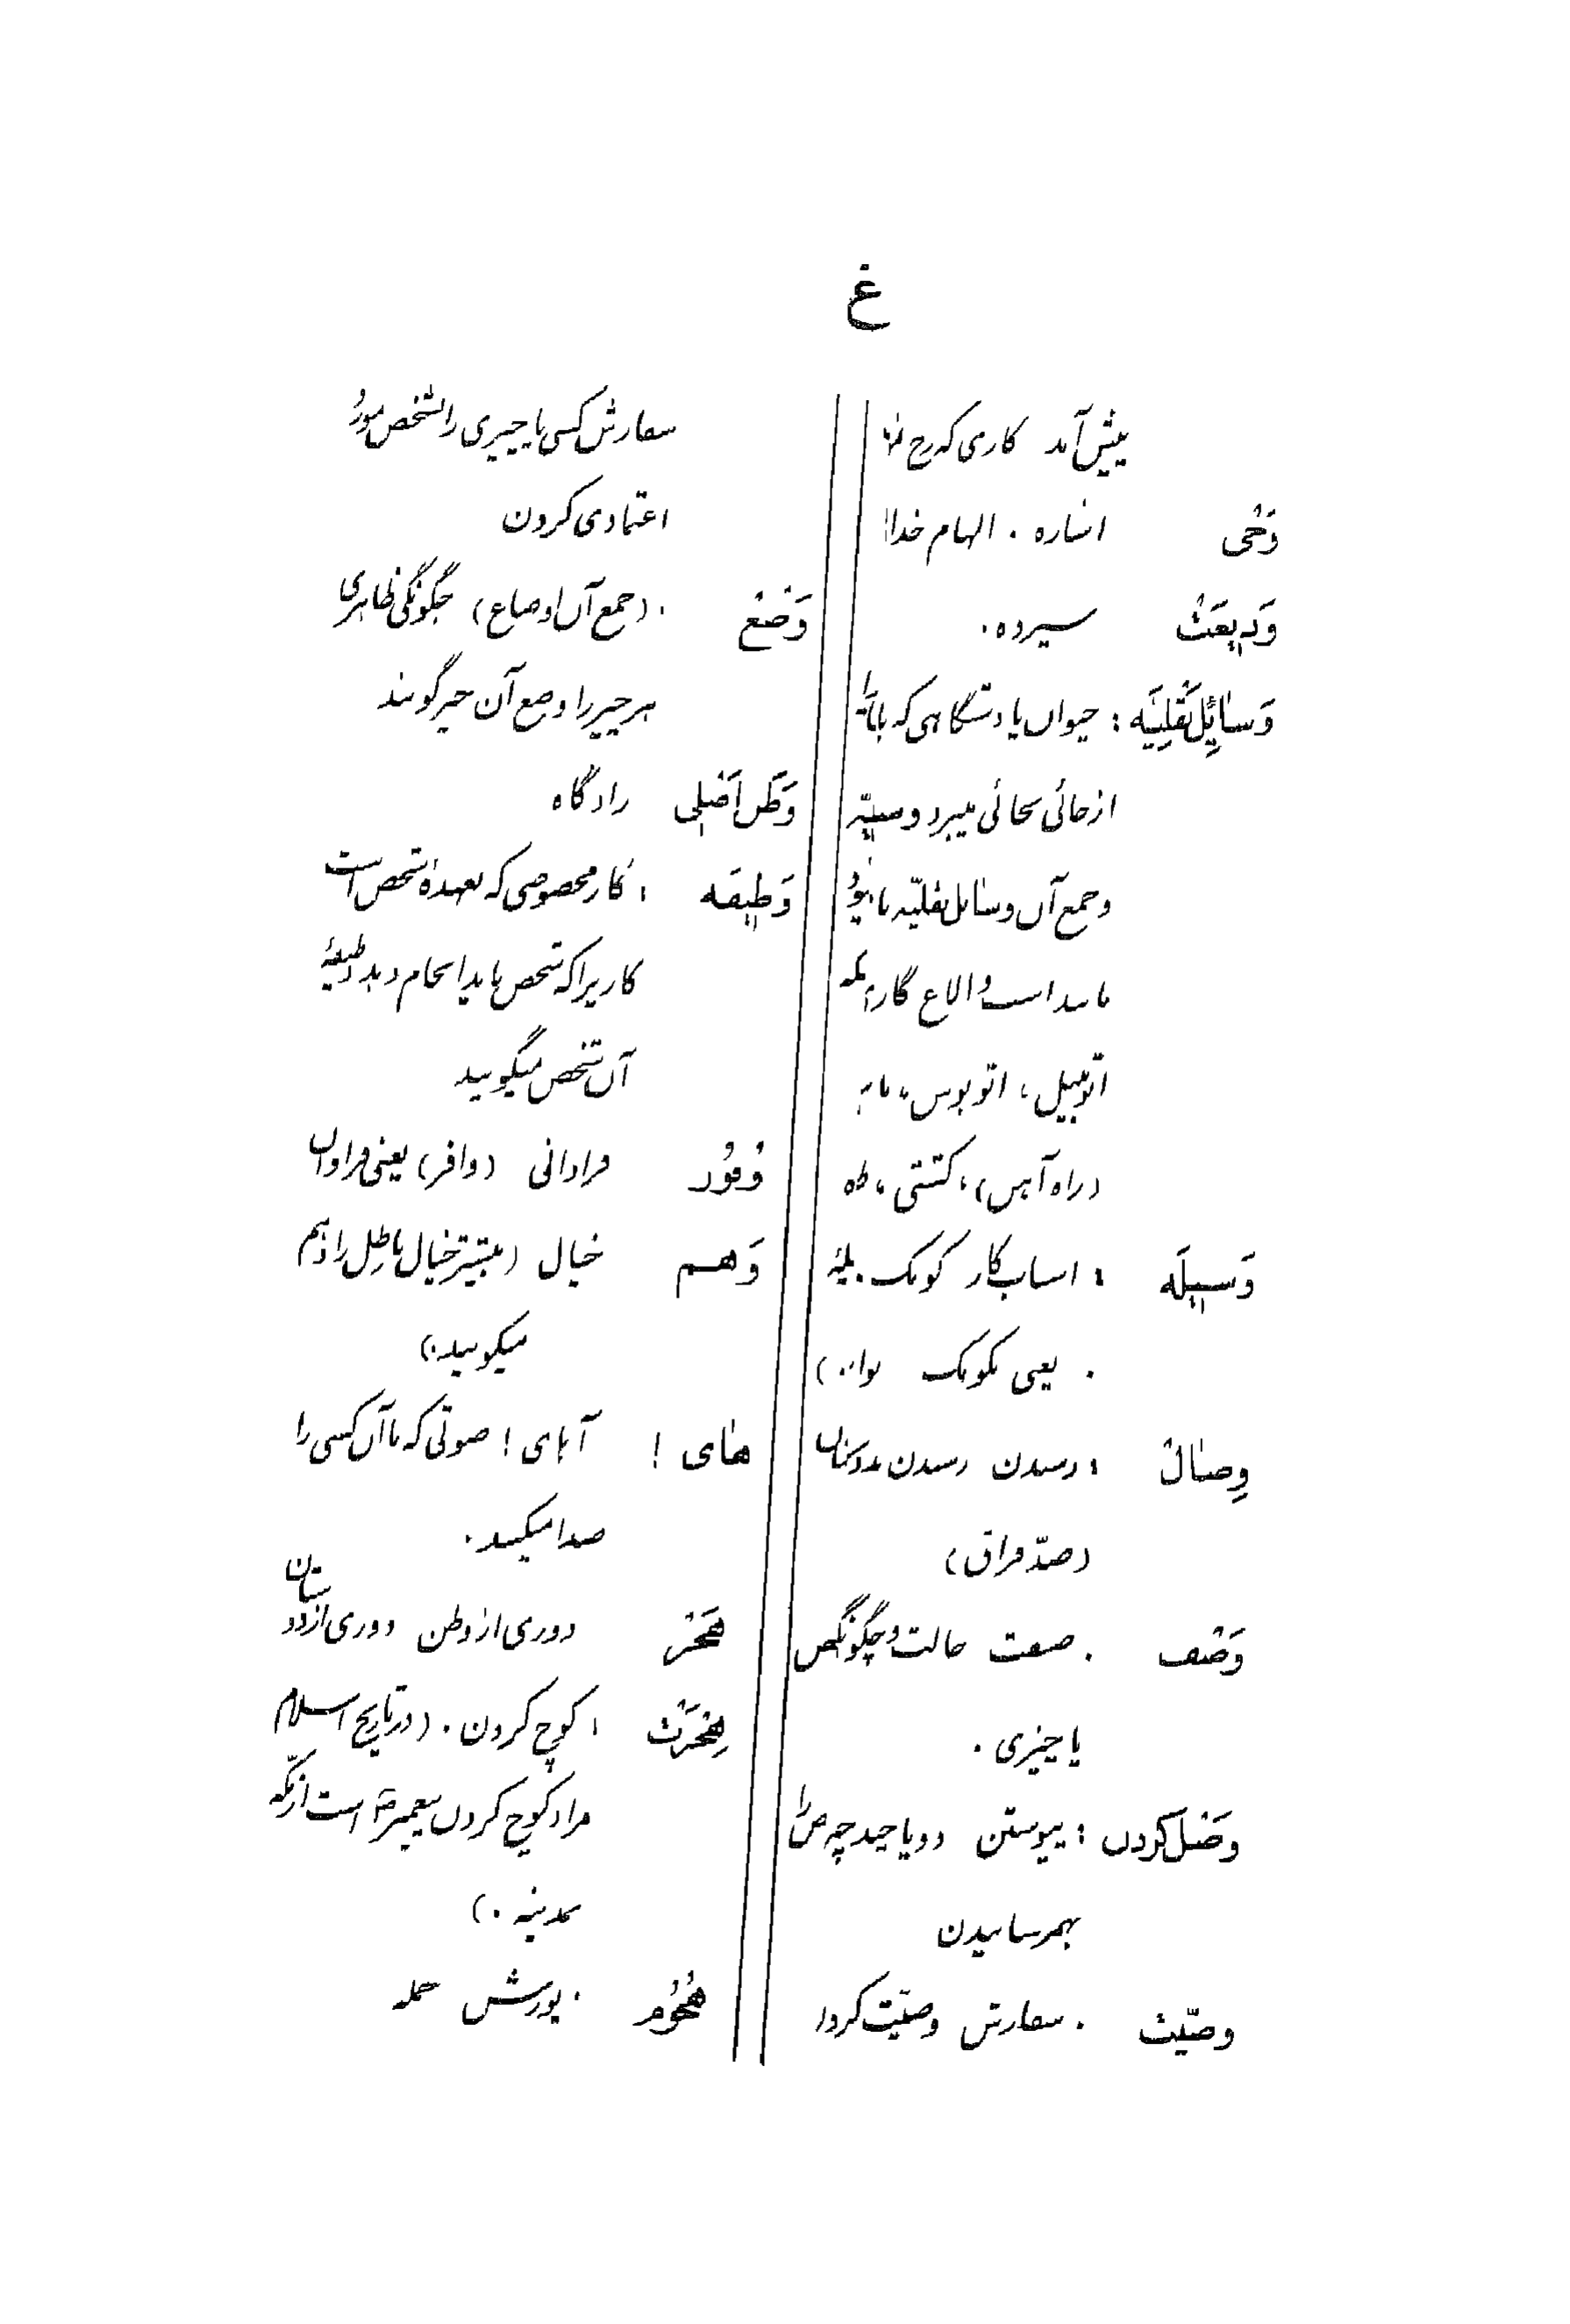 غ
پیش‌آمد کاری که رخ
وَحْی اشاره . الهام خدا
وَدیعَتْ سپرده .
وَسائِل نَقْلِیَه : حیوان یا دستگاهی که بار را
از جائی بجائی میبرد وسیله
و جمع آن وسائل نقلیّه یا
مانند اسب و الاغ گاری
اتومبیل ، اتوبوس ،
(راه آهن) ، کشتی ،
وَسیلَه : اسباب کار کومک .
. یعنی بکومک
وِصال : رسیدن رسیدن بدوستان
(ضدّ فراق)
وَصْف . صفت حالت و چگونگی
یا چیزی .
وَصْل کردن : پیوستن دو یا چند چیز را
بهم رسانیدن
وصیّت . سفارش وصیّت کردن
سفارش کسی یا چیزی را بشخص مورد
اعتمادی کردن
وَضْعْ . (جمع آن اوضاع) چگونگی ظاهری
هر چیز را وضع آن چیز گویند
وَطَن اَصْلی زادگاه
وَظیفَه : کار مخصوصی که بعهدهٔ شخص است
کاریرا که شخص باید انجام دهد وظیفهٔ
آن شخص میگویند
وُفُور فراوانی (وافر) یعنی فراوان
وَهـم خیال (بیشتر خیال باطِل را وَهم
میگویند.)
هٰای ! آهای ! صوتی که با آن کسی را
صدا میکنید .
هَجْر دوری از وطن دوری از دوستان
هِجْرَتْ : کوچ کردن . (در تاریخ اسلام
مراد کوچ کردن پیغمبر ص است از مکّه
بمدینه .)
هُجُوم . یورش حمله